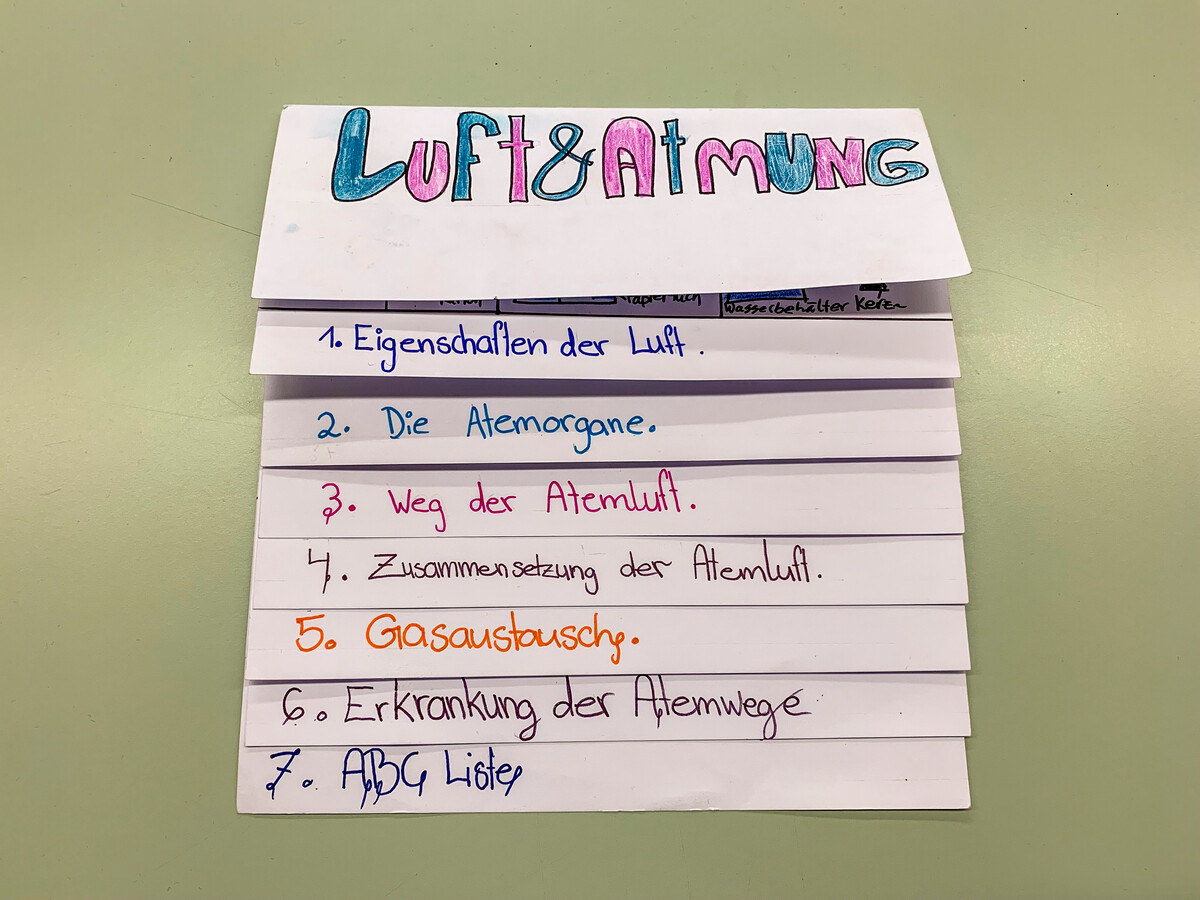 Luft & Atmung
Wasserbehälter Kerze
1. Eigenschaften der Luft.
2. Die Atemorgane.
3. Weg der Atemluft.
4. Zusammensetzung der Atemluft.
5. Gasaustausch.
6. Erkrankung der Atemwege
7. ABC Liste